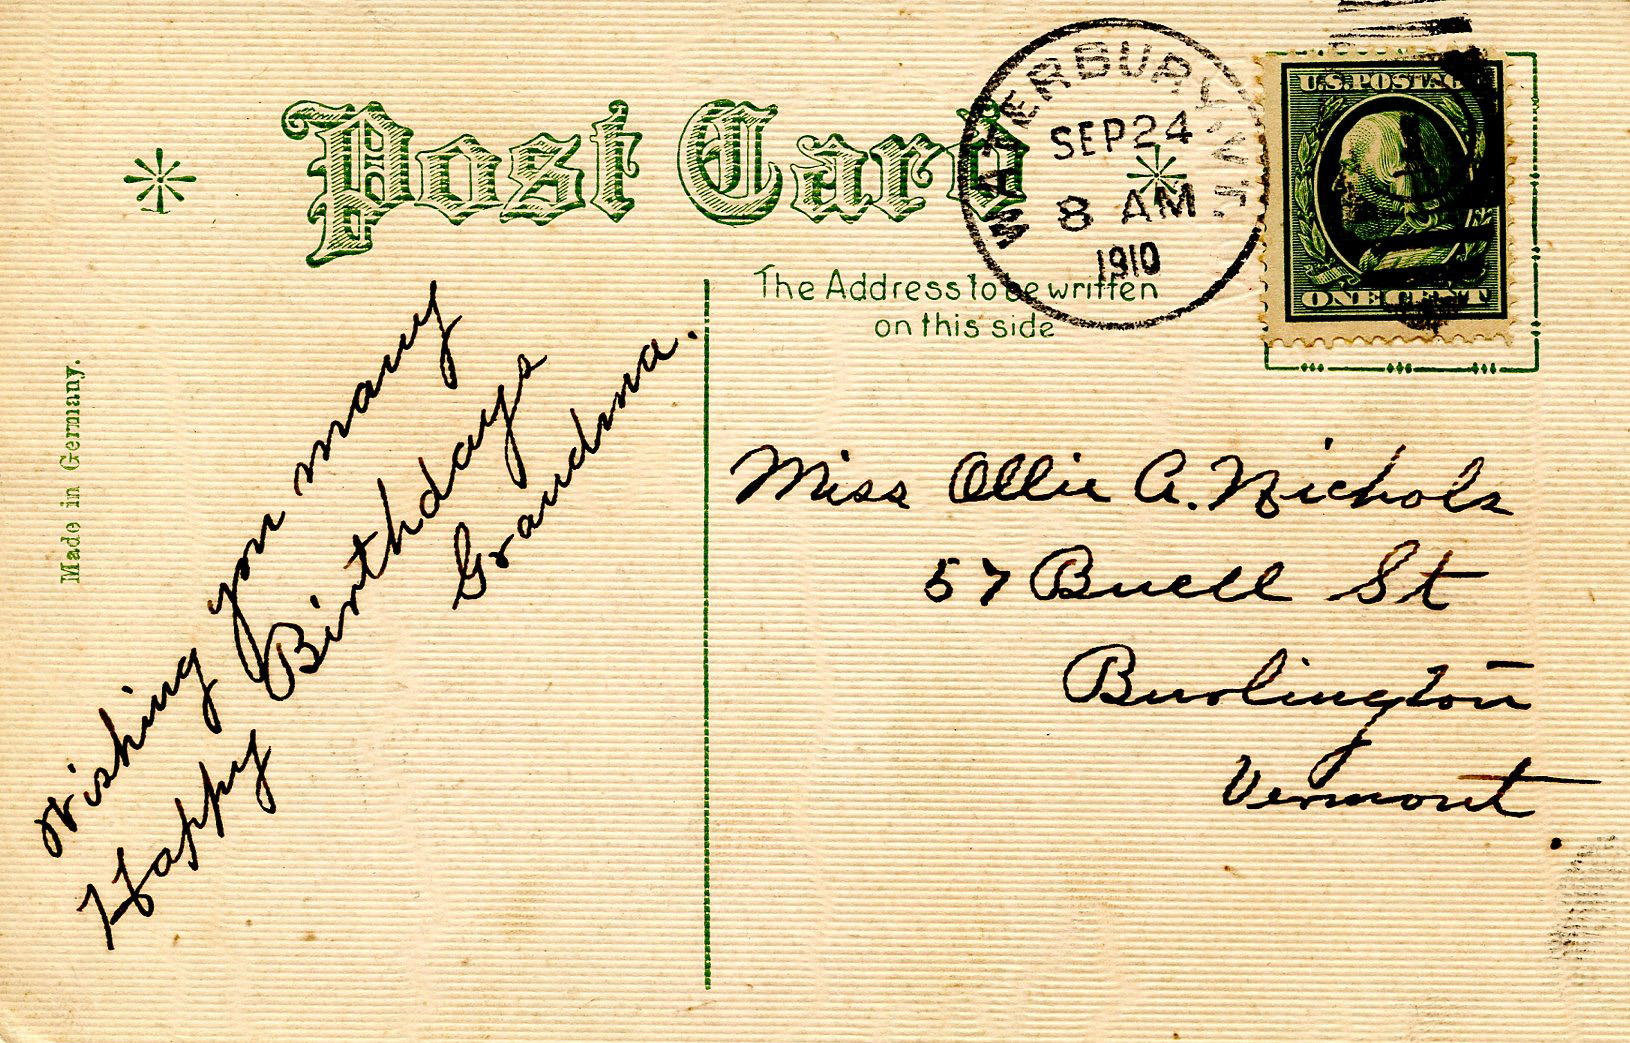 Post Card
WATERBURY, VT.
SEP 24
8 AM
1910
U.S. POSTAGE
ONE CENT
The Address to be written
on this side
Made in Germany.
Wishing you many
Happy Birthdays
Grandma.
Miss Ollie A. Nichols
57 Buell St
Burlington
Vermont.